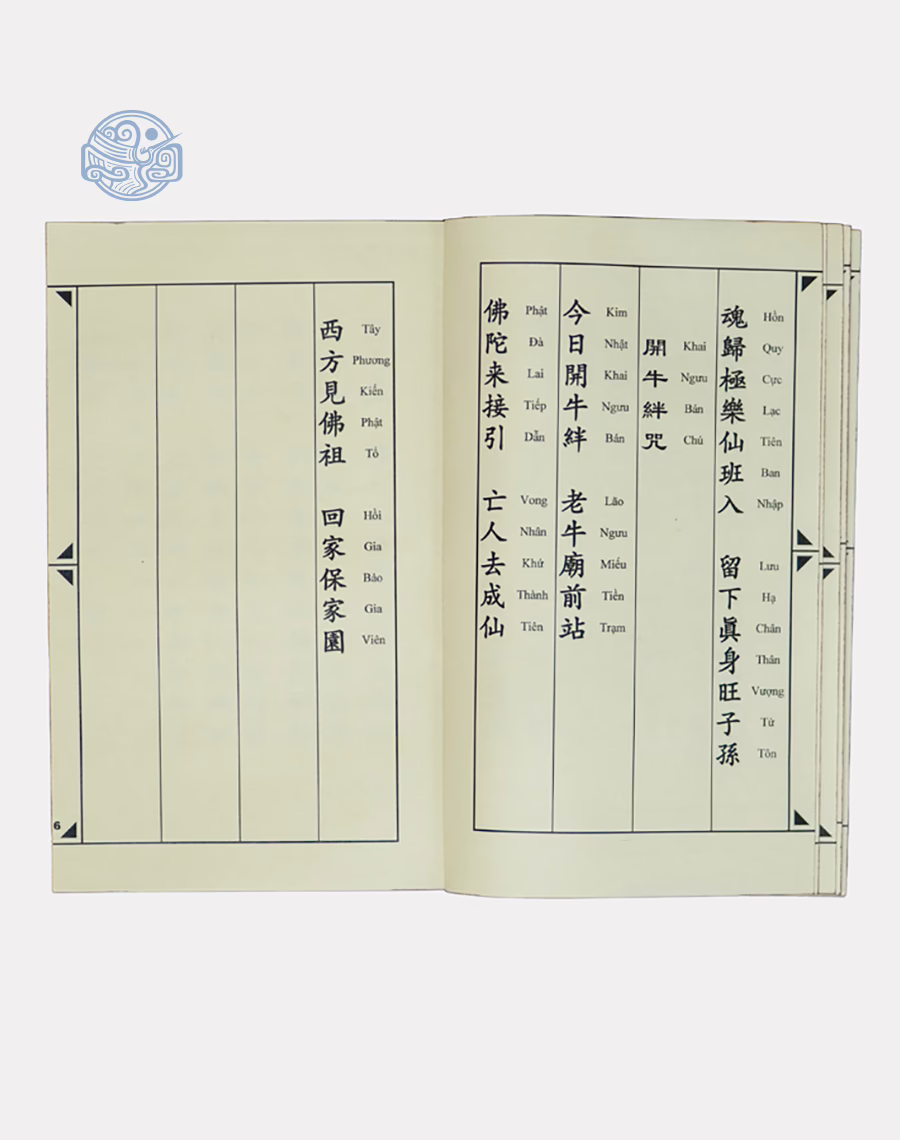 魂歸極樂仙班入 留下眞身旺子孫
Hồn Quy Cực Lạc Tiên Ban Nhập Lưu Hạ Chân Thân Vượng Tử Tôn
開牛絆咒
Khai Ngưu Bán Chú
今日開牛絆 老牛廟前站
Kim Nhật Khai Ngưu Bán Lão Ngưu Miếu Tiền Trạm
佛陀来接引 亡人去成仙
Phật Đà Lai Tiếp Dẫn Vong Nhân Khứ Thành Tiên
西方見佛祖 回家保家園
Tây Phương Kiến Phật Tổ Hồi Gia Bảo Gia Viên
6